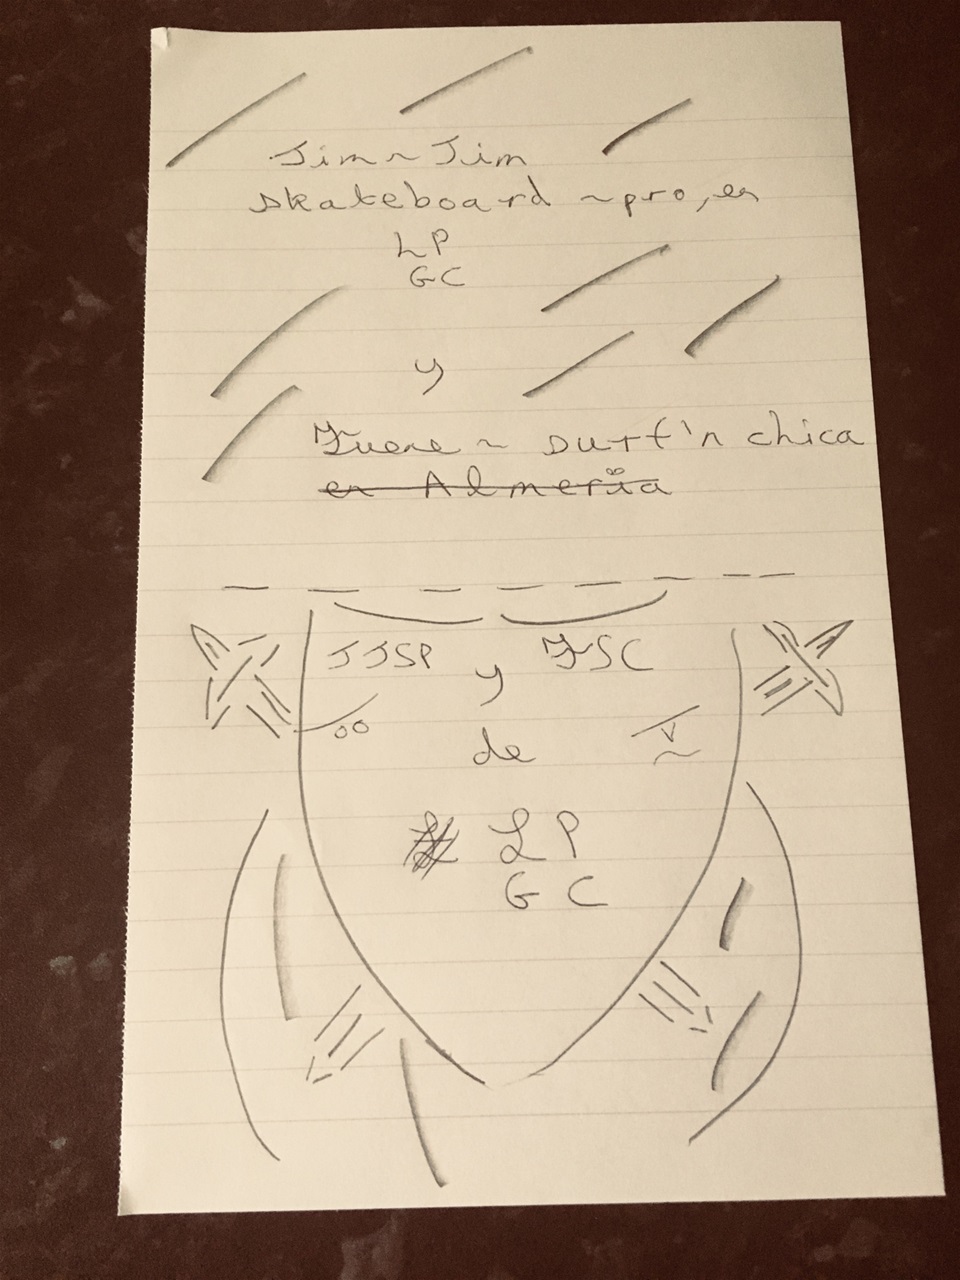 Jim ~ Jim
skateboard ~ pro, en
LP
GC
y
Fuene ~ surf'n chica
en Almeria
JJSP y FSC
de
LP
GC